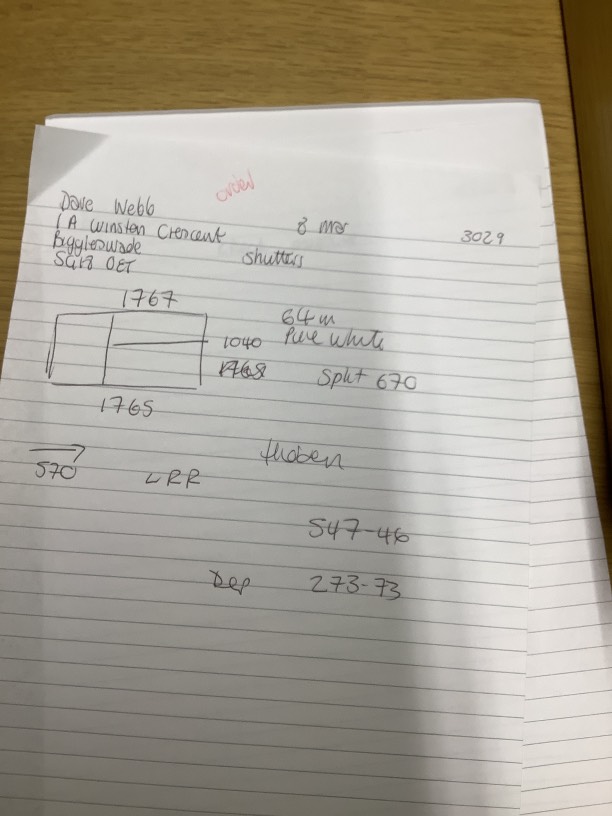 order
Dave Webb
1A Winston Crescent 8 Mar 3029
Biggleswade shutters
SG18 0ET
1767
64m
1040 Pure White
1768 Split 670
1765
570 LRR
547-46
Dep 273-73